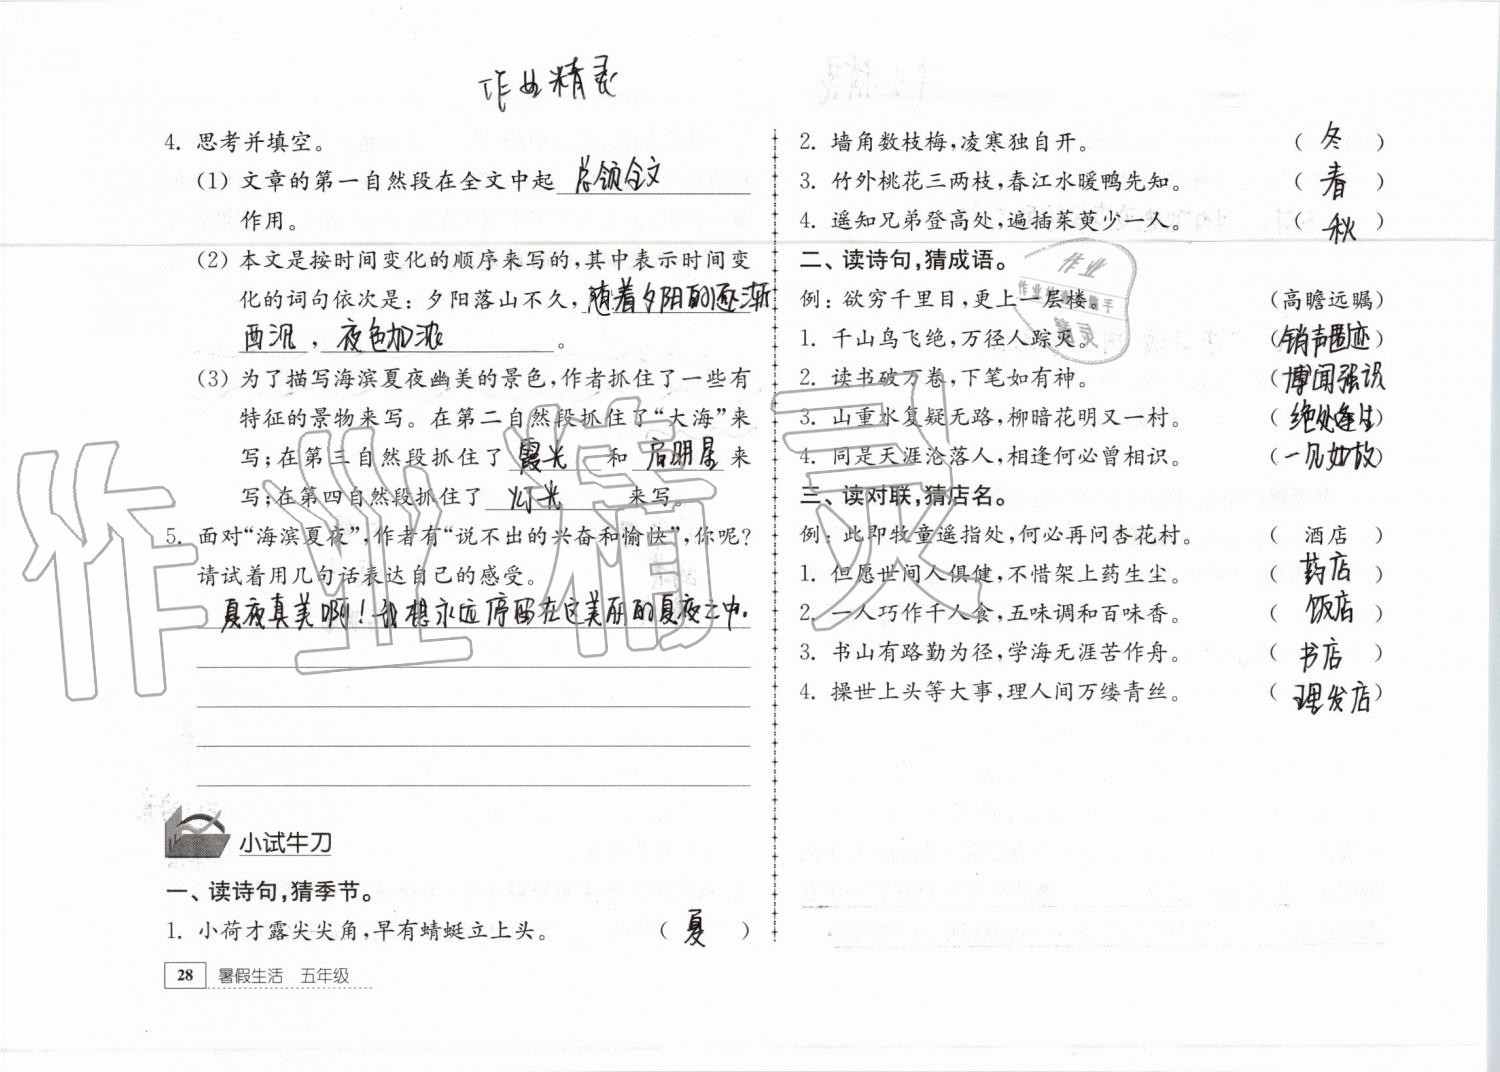 作业精灵
4. 思考并填空。
(1) 文章的第一自然段在全文中起 总领全文
作用。
(2) 本文是按时间变化的顺序来写的,其中表示时间变
化的词句依次是:夕阳落山不久, 随着夕阳的逐渐
西沉 , 夜色加浓 。
(3) 为了描写海滨夏夜幽美的景色,作者抓住了一些有
特征的景物来写。在第二自然段抓住了“大海”来
写;在第三自然段抓住了 霞光 和 启明星 来
写;在第四自然段抓住了 灯光 来写。
5. 面对“海滨夏夜”,作者有“说不出的兴奋和愉快”,你呢?
请试着用几句话表达自己的感受。
夏夜真美啊!我想永远停留在这美丽的夏夜之中。
小试牛刀
一、读诗句,猜季节。
1. 小荷才露尖尖角,早有蜻蜓立上头。 ( 夏 )
28 暑假生活 五年级
2. 墙角数枝梅,凌寒独自开。 ( 冬 )
3. 竹外桃花三两枝,春江水暖鸭先知。 ( 春 )
4. 遥知兄弟登高处,遍插茱萸少一人。 ( 秋 )
二、读诗句,猜成语。
例:欲穷千里目,更上一层楼。 (高瞻远瞩)
1. 千山鸟飞绝,万径人踪灭。 (销声匿迹)
2. 读书破万卷,下笔如有神。 (博闻强识)
3. 山重水复疑无路,柳暗花明又一村。 (绝处逢生)
4. 同是天涯沦落人,相逢何必曾相识。 (一见如故)
三、读对联,猜店名。
例:此即牧童遥指处,何必再问杏花村。 ( 酒店 )
1. 但愿世间人俱健,不惜架上药生尘。 ( 药店 )
2. 一人巧作千人食,五味调和百味香。 ( 饭店 )
3. 书山有路勤为径,学海无涯苦作舟。 ( 书店 )
4. 操世上头等大事,理人间万缕青丝。 ( 理发店)
作业精灵
作业
精灵